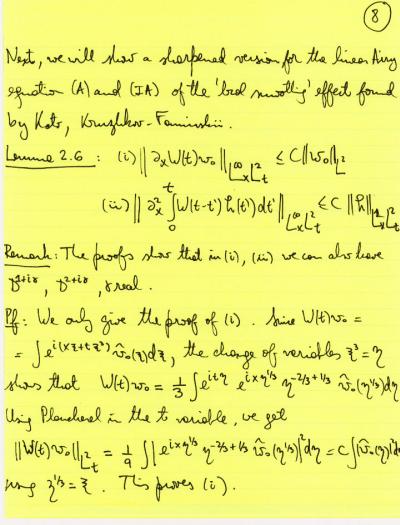 8
Next, we will show a sharpened version for the linear Airy
equation (A) and (IA) of the 'local smoothing' effect found
by Kato, Kruzhkov-Faminskii.
Lemma 2.6 : (i) ‖∂ₓW(t)v₀‖_{L^∞_x L²_t} ≤ C‖v₀‖_{L²}
(iii) ‖∂²ₓ ∫₀ᵗ W(t-t') h(t')dt'‖_{L^∞_x L²_t} ≤ C ‖h‖_{L¹_x L²_t}
Remark: The proofs show that in (i), (iii) we can also have
D^{1+iγ}, D^{2+iγ}, γ real.
Pf: We only give the proof of (i). Since W(t)v₀ =
= ∫e^{i(xξ+tξ³)} v̂₀(ξ)dξ, the change of variables ξ³=η
shows that W(t)v₀ = 1/3 ∫e^{itη} e^{ixη^{1/3}} η^{-2/3} v̂₀(η^{1/3})dη
Using Plancherel in the t variable, we get
‖W(t)v₀‖_{L²_t} = 1/9 ∫|e^{ixη^{1/3}} η^{-2/3+1/3} v̂₀(η^{1/3})|²dη = C∫|v̂₀(η)|²dη
using η^{1/3}=ξ. This proves (i).